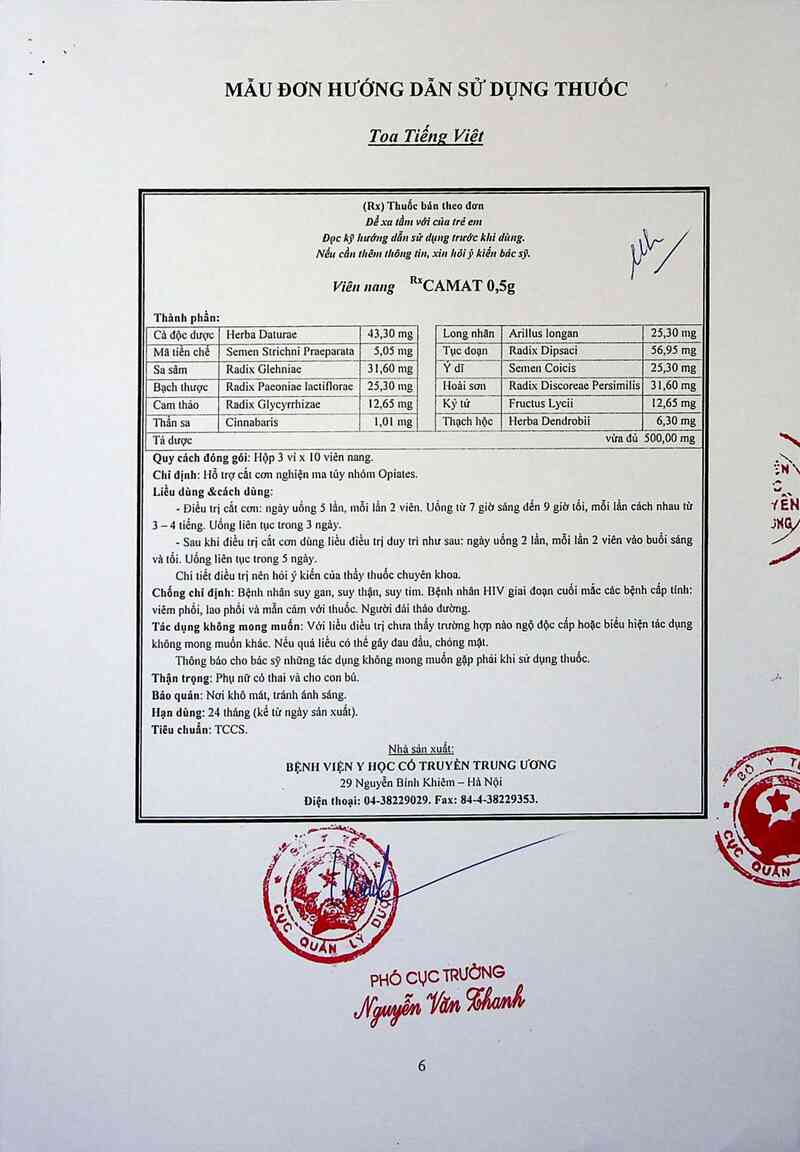 MẪU ĐƠN HƯỚNG DẪN SỬ DỤNG THUỐC
Toa Tiếng Việt
(Rx) Thuốc bán theo đơn
Để xa tầm với của trẻ em
Đọc kỹ hướng dẫn sử dụng trước khi dùng.
Nếu cần thêm thông tin, xin hỏi ý kiến bác sỹ.
Viên nang RxCAMAT 0,5g
Thành phần:
Cà độc dược Herba Daturae 43,30 mg Long nhãn Arillus longan 25,30 mg
Mã tiền chế Semen Strichni Praeparata 5,05 mg Tục đoạn Radix Dipsaci 56,95 mg
Sa sâm Radix Glehniae 31,60 mg Ý dĩ Semen Coicis 25,30 mg
Bạch thược Radix Paeoniae lactiflorae 25,30 mg Hoài sơn Radix Discoreae Persimilis 31,60 mg
Cam thảo Radix Glycyrrhizae 12,65 mg Kỷ tử Fructus Lycii 12,65 mg
Thần sa Cinnabaris 1,01 mg Thạch hộc Herba Dendrobii 6,30 mg
Tá dược vừa đủ 500,00 mg
Quy cách đóng gói: Hộp 3 vỉ x 10 viên nang.
Chỉ định: Hỗ trợ cắt cơn nghiện ma túy nhóm Opiates.
Liều dùng &cách dùng:
- Điều trị cắt cơn: ngày uống 5 lần, mỗi lần 2 viên. Uống từ 7 giờ sáng đến 9 giờ tối, mỗi lần cách nhau từ
3 – 4 tiếng. Uống liên tục trong 3 ngày.
- Sau khi điều trị cắt cơn dùng liều điều trị duy trì như sau: ngày uống 2 lần, mỗi lần 2 viên vào buổi sáng
và tối. Uống liên tục trong 5 ngày.
Chi tiết điều trị nên hỏi ý kiến của thầy thuốc chuyên khoa.
Chống chỉ định: Bệnh nhân suy gan, suy thận, suy tim. Bệnh nhân HIV giai đoạn cuối mắc các bệnh cấp tính:
viêm phổi, lao phổi và mẫn cảm với thuốc. Người đái tháo đường.
Tác dụng không mong muốn: Với liều điều trị chưa thấy trường hợp nào ngộ độc cấp hoặc biểu hiện tác dụng
không mong muốn khác. Nếu quá liều có thể gây đau đầu, chóng mặt.
Thông báo cho bác sỹ những tác dụng không mong muốn gặp phải khi sử dụng thuốc.
Thận trọng: Phụ nữ có thai và cho con bú.
Bảo quản: Nơi khô mát, tránh ánh sáng.
Hạn dùng: 24 tháng (kể từ ngày sản xuất).
Tiêu chuẩn: TCCS.
Nhà sản xuất:
BỆNH VIỆN Y HỌC CỔ TRUYỀN TRUNG ƯƠNG
29 Nguyễn Bỉnh Khiêm – Hà Nội
Điện thoại: 04-38229029. Fax: 84-4-38229353.
BỘ Y TẾ
CỤC QUẢN LÝ DƯỢC
BỘ Y TẾ
CỤC QUẢN
PHÓ CỤC TRƯỞNG
Nguyễn Văn Thanh
6